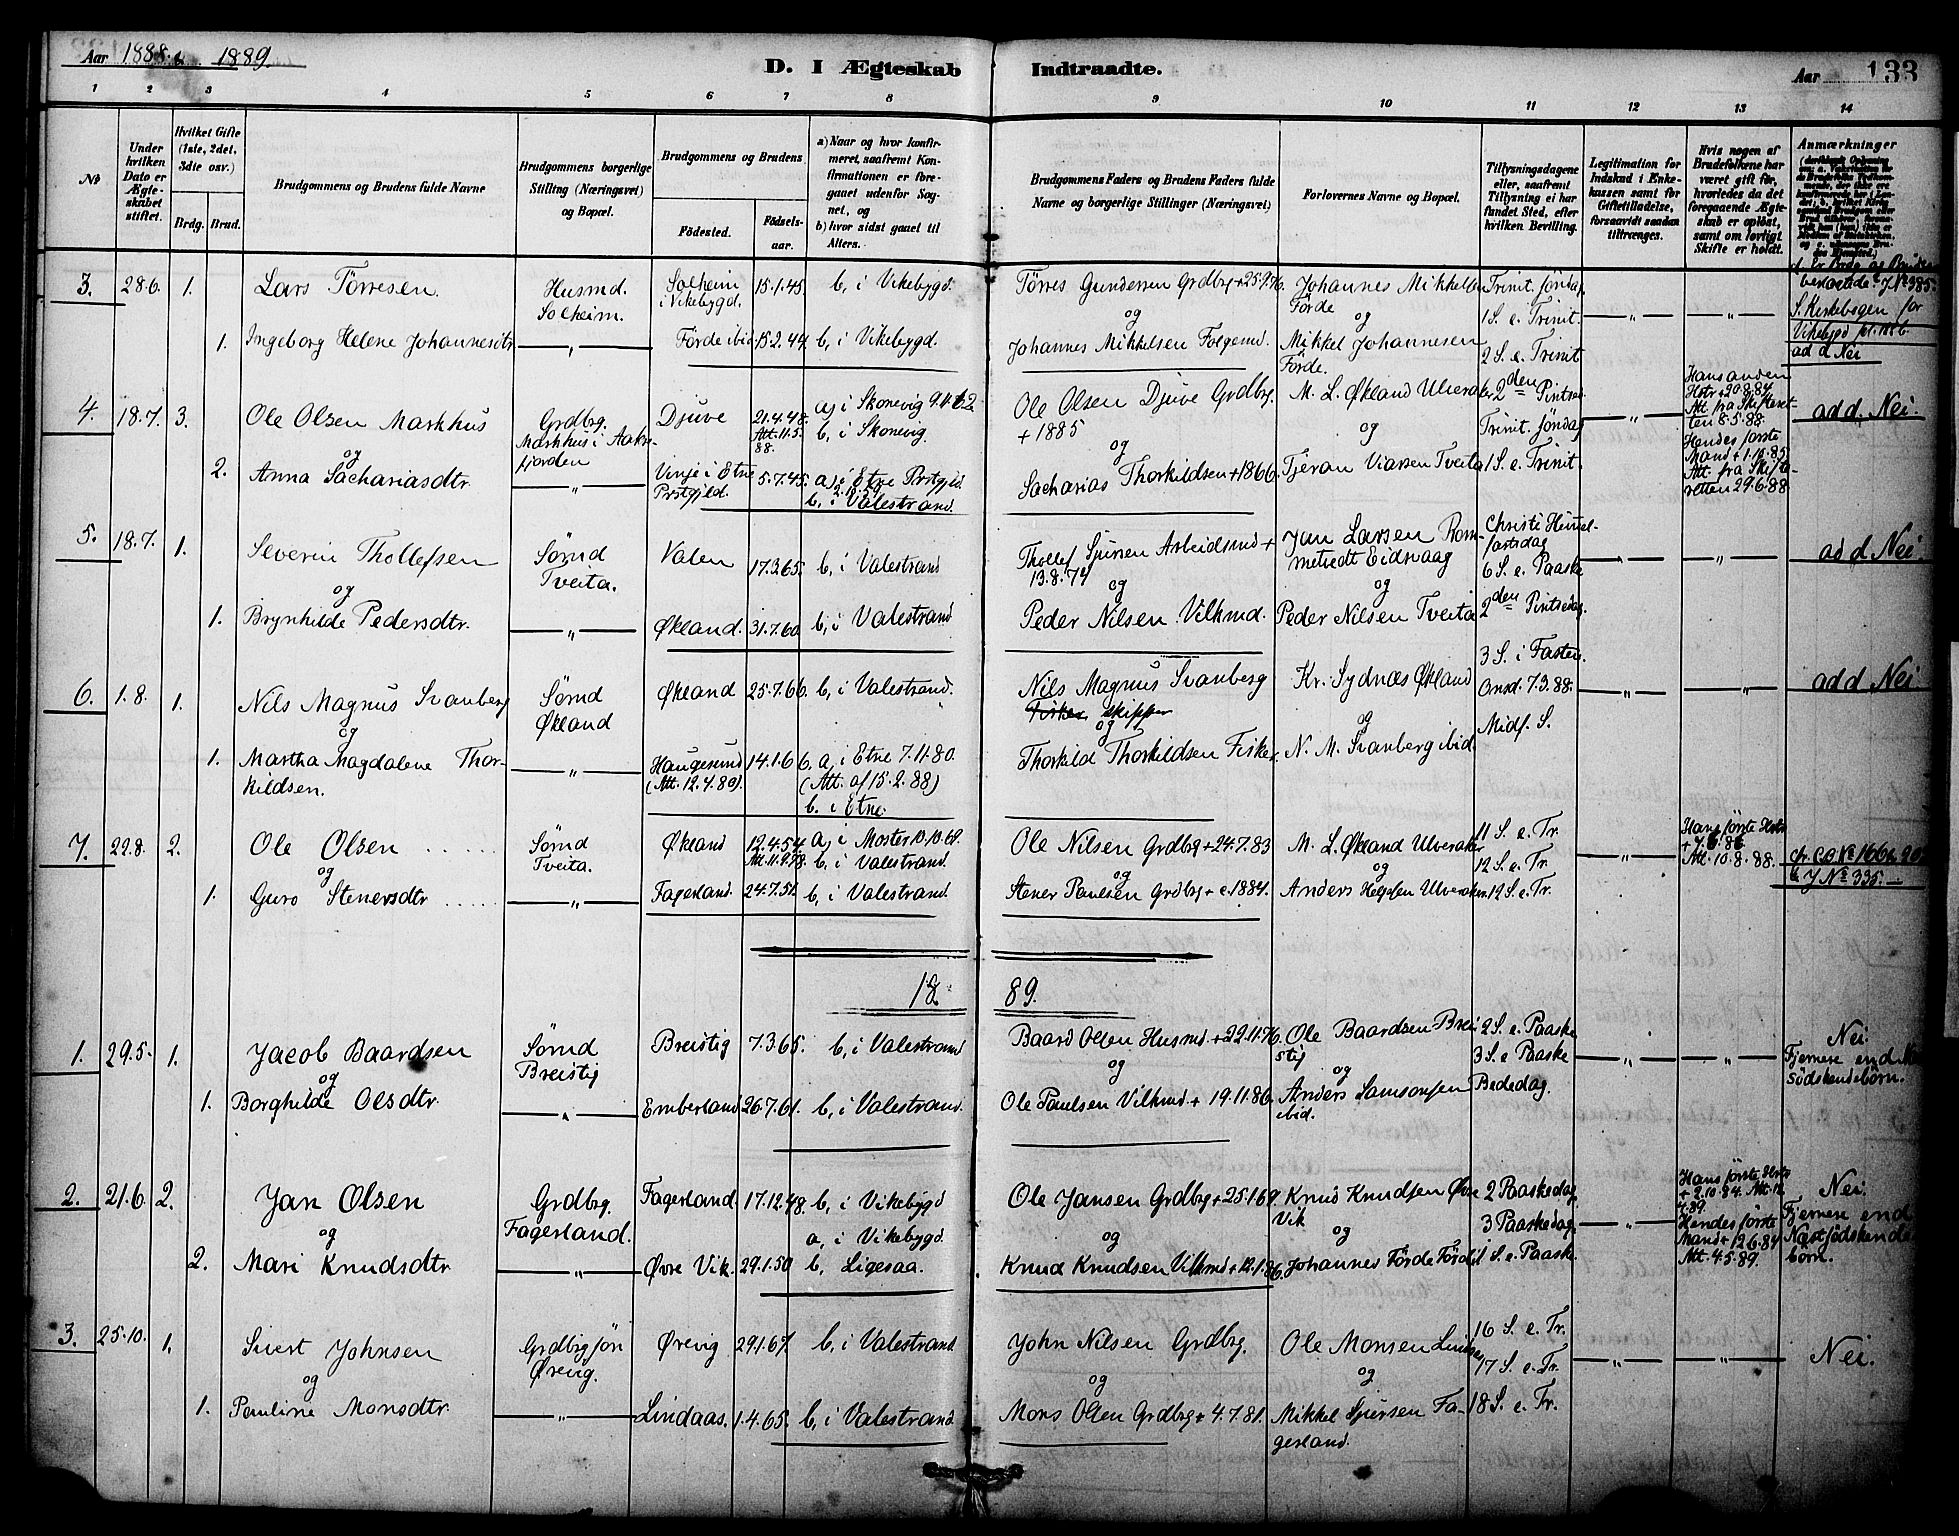 Aar 1888 & 1889.
D. I Ægteskab Indtraadte.
Aar 133
1 2 3 4 5 6 7 8 9 10 11 12 13 14
№
Under hvilken Dato er Ægteskabet stiftet.
Hvilket Gifte (1ste, 2det, 3die osv.)
Brdg. Brud.
Brudgommens og Brudens fulde Navne
Brudgommens borgerlige Stilling (Næringsvei) og Bopæl.
Brudgommens og Brudens
Fødested.
Fødselsaar.
a) Naar og hvor konfirmeret, saafremt Konfirmationen er foregaaet udenfor Sognet, og
b) hvor sidst gaaet til Alters.
Brudgommens Faders og Brudens Faders fulde Navne og borgerlige Stillinger (Næringsvei)
Forlovernes Navne og Bopæl.
Tillysningsdagene eller, saafremt Tillysning ei har fundet Sted, efter hvilken Bevilling.
Legitimation for Indskud i Enkekassen samt for Giftetilladelse, forsaavidt saadan tiltrænges.
Hvis nogen af Brudefolkene har været gift før, hvorledes da det foregaaende Ægteskab er opløst, samt om lovligt Skifte er holdt.
Anmærkninger
3. 28.6. 1. Lars Törresen. Husmd. Solheim. Solheim i Vikebygd. 15.1.45. b, i Vikebygd. Törres Gundersen Grdbg + 25.9.76. Johannes Mikkelsen Förde Trinit. söndag
og og 1 S. e. Trinit. — " — — " —
1. Ingeborg Helene Johannesdtr — " — Förde ibid 15.2.44. b, i Vikebygd. Johannes Mikkelsen Folgemd. Mikkel Johannesen Förde. 2 S. e. Trinit
S. Kirkebogen for Vikebygd
ad d Nei
4. 18.7. 3. Ole Olsen Markhus Grdbg. Markhus i Aakrefjorden Djuve 21.4.48. Att. 11.5.88. a, i Skonevig 9.11.62 b, i Skonevig. Ole Olsen Djuve Grdbg. + 1885 M. L. Økland Ulveraker 2den Pintsed. Trinit. söndag — " — Hans anden Hstr + 20.8.84 Att. fra Skifteretten 8.5.88. ad d. Nei.
og og og
2. Anna Sachariasdtr. — " — Vinje i Etne Prstgjld. 5.7.45. a, i Etne Prstgjld 2.10.59 b, i Valestrand. Sacharias Thorkildsen + 1866. Tjeran Viarsen Tveita 1 S. e. Trinit. Hendes förste Mand + 1.10.85. Att. fra Skifteretten 29.6.88
5. 18.7. 1. Severin Thollefsen Sømd Tveita. Valen 17.3.65. b, i Valestrand Thollef Sjursen Arbeidsmd + 13.8.74 Jan Larsen Rommetvedt Eidsvaag Christi Himmelfartsdag 6 S. e. Paaske — " — — " — ad d. Nei
og og og
1. Brynhilde Pedersdtr. — " — Økland. 31.7.60 b, i Valestrand Peder Nilsen Vilkmd. Peder Nilsen Tveita 2den Pintsedag
6. 1.8. 1. Nils Magnus Svanberg Sømd Økland Økland 25.7.66. b, i Valestrand. Nils Magnus Svanberg Fisker skipper Kr. Sydnæs Økland 3 S. i Fasten. Onsd. 7.3.88. — " — — " — ad d. Nei
og og og Midf. S.
1. Martha Magdalene Thorkildsen. — " — Haugesund (Att. 12.4.80). 14.1.66. a, i Etne 7.11.80. (Att. af 15.2.88) b. i Etne. Thorkild Thorkildsen Fisker N. M. Svanberg ibid.
7. 22.8. 2. Ole Olsen Sømd Tveita. Økland 12.4.54 a, i Moster 10.10.69. b, i Valestrand. Ole Nilsen Grdbg + 24.7.83 M. L. Økland Ulveraker 11 S. e. Tr. 12 S. e. Tr. — " — Hans förste Hstr + 7.6.86 Att. 10.8.88.
og og og
1. Guro Stenersdtr — " — Fagerland. 24.7.51. b, i Valestrand. Stener Paulsen Grdbg + c. 1884. Anders Helgesen Ulveraker. 12 S. e. Tr. J № 335.
18 89.
1. 29.5. 1. Jacob Baardsen Sømd Breistig Breistig 7.3.65. b, i Valestrand Baard Olsen Husmd. + 22.11.76. Ole Baardsen Breistig 2 S. e. Paaske 3 S. e Paaske — " — — " — Nei. Fjernere end Södskendebörn.
og og og
1. Borghilde Olsdtr. — " — Emberland 26.7.61. b, i Valestrand. Ole Paulsen Vilkmd + 19.11.86. Anders Samsonsen ibid. Bededag.
2. 21.6. 2. Jan Olsen Grdbg. Fagerland. Fagerland. 17.12.48. b, i Vikebygd Ole Jansen Grdbg + 25.1.69. Knud Knudsen Øvre Vik 2 Paaskedag 3 Paaskedag — " — Hans förste Hstr + 2.10.84. Nei. Fjernere end Næstsödskendebörn.
og a, i Vikebygd. og og
2. Mari Knudsdtr — " — Øvre Vik. 29.1.50 b, Ligesaa. Knud Knudsen Vilkmd + 12.1.86. Johannes Förde Förde 1 S. e. Paaske Hendes förste Mand + 12.6.84 Att. 4.5.89.
3. 25.10. 1. Sivert Johnsen Grdbgssön Ørevig. Ørevig 29.1.67. b, i Valestrand John Nilsen Grdbg. Ole Monsen Lindaas 16 S. e. Tr. 17 S. e. Tr. — " — — " — Nei.
og og og
1. Pauline Monsdtr. — " — Lindaas. 1.4.65. b, i Valestrand Mons Olsen Grdbg + 4.7.81. Mikkel Sjursen Fagerland. 18 S. e. Tr.